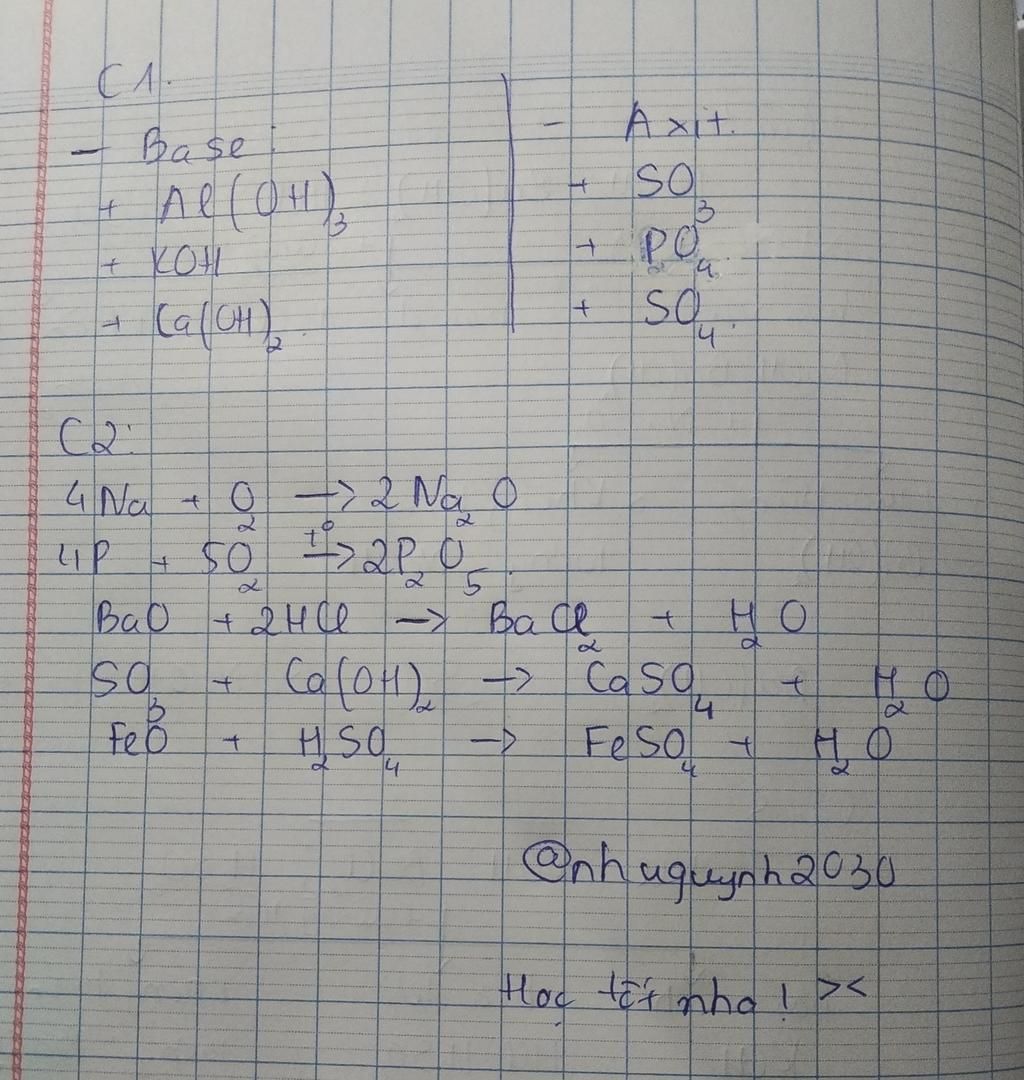 C1.
- Base:
+ Al(OH)₃
+ KOH
+ Ca(OH)₂
- Axit.
+ SO₃
+ PO₄
+ SO₄.
C2:
4Na + O₂ → 2Na₂O
4P + 5O₂ →(t°) 2P₂O₅.
BaO + 2HCl → BaCl₂ + H₂O
SO₃ + Ca(OH)₂ → CaSO₄ + H₂O
FeO + H₂SO₄ → FeSO₄ + H₂O
@nhuquynh2030
Học tốt nha! ><